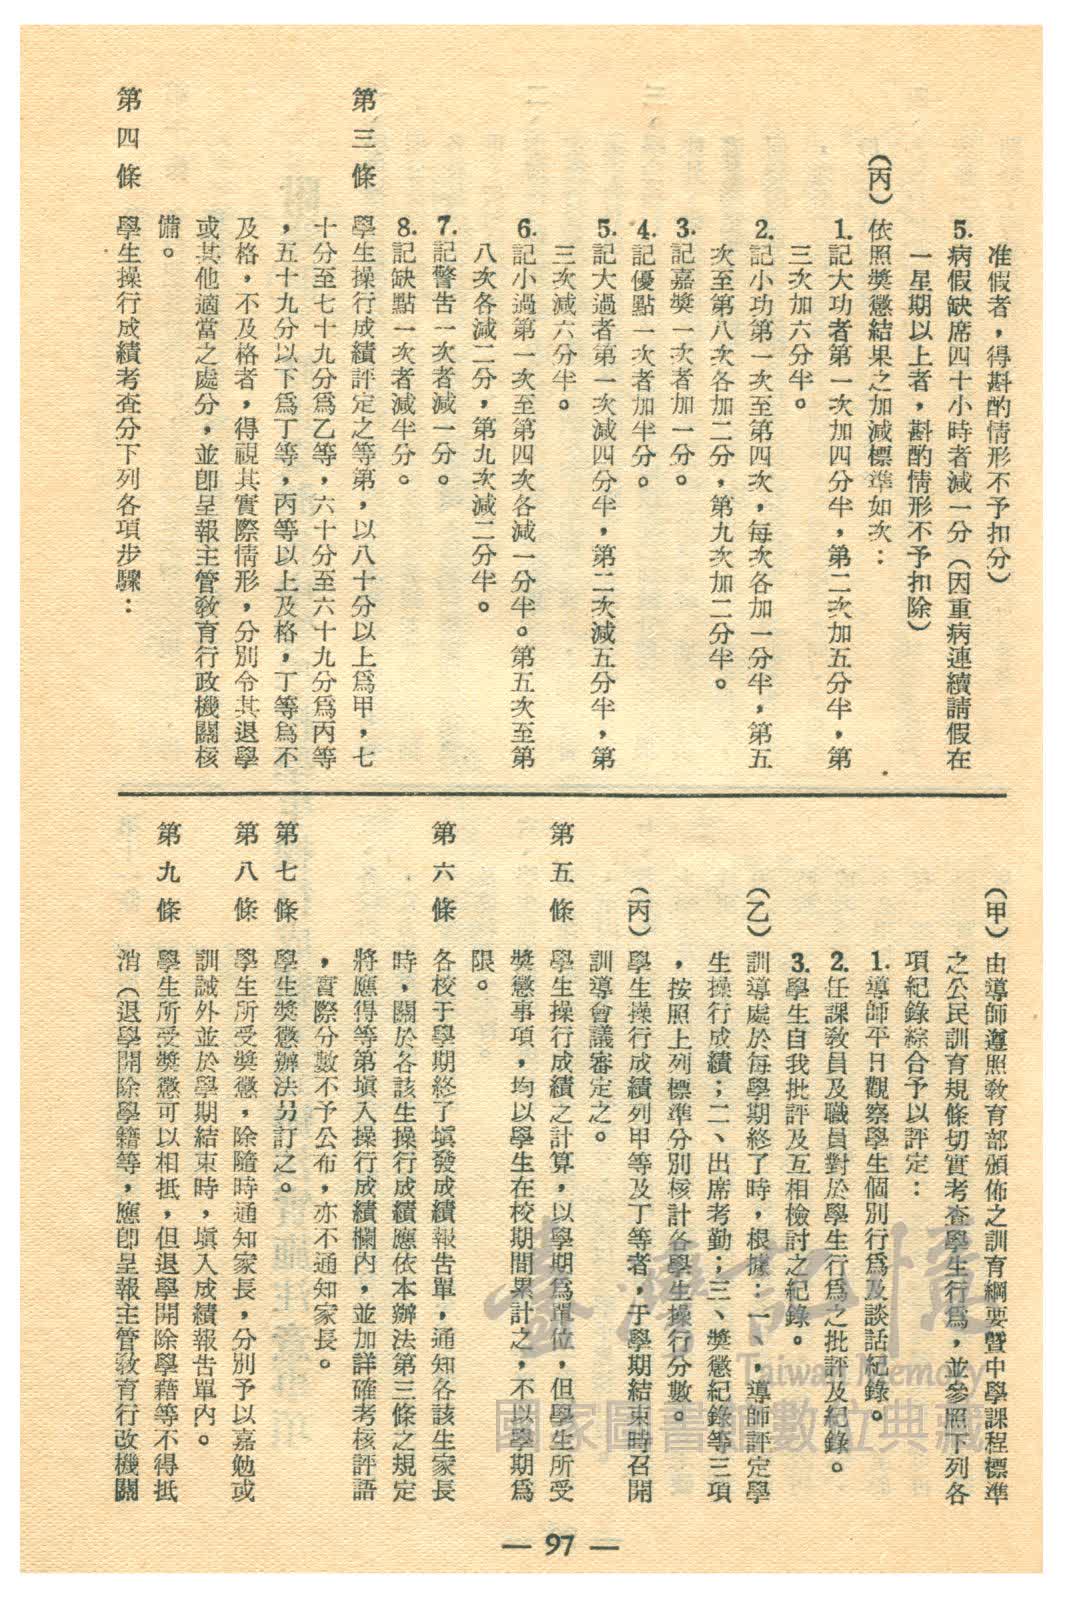 准假者，得斟酌情形不予扣分）
5.病假缺席四十小時者減一分（因重病連續請假在
一星期以上者，斟酌情形不予扣除）
（丙）依照獎懲結果之加減標準如次：
1.記大功者第一次加四分半，第二次加五分半，第
三次加六分半。
2.記小功第一次至第四次，每次各加一分半，第五
次至第八次各加二分，第九次加二分半。
3.記嘉獎一次者加一分。
4.記優點一次者加半分。
5.記大過者第一次減四分半，第二次減五分半，第
三次減六分半。
6.記小過第一次至第四次各減一分半。第五次至第
八次各減二分，第九次減二分半。
7.記警告一次者減一分。
8.記缺點一次者減半分。
第三條　學生操行成績評定之等第，以八十分以上爲甲，七
十分至七十九分爲乙等，六十分至六十九分爲丙等
，五十九分以下爲丁等，丙等以上及格，丁等爲不
及格，不及格者，得視其實際情形，分別令其退學
或其他適當之處分，並卽呈報主管敎育行政機關核
備。
第四條　學生操行成績考查分下列各項步驟：
（甲）由導師遵照敎育部頒佈之訓育綱要暨中學課程標準
之公民訓育規條切實考查學生行爲，並參照下列各
項紀錄綜合予以評定：
1.導師平日觀察學生個別行爲及談話紀錄。
2.任課敎員及職員對於學生行爲之批評及紀錄。
3.學生自我批評及互相檢討之紀錄。
（乙）訓導處於每學期終了時，根據：一、導師評定學
生操行成績；二、出席考勤；三、獎懲紀錄等三項
，按照上列標準分別核計各學生操行分數。
（丙）學生操行成績列甲等及丁等者，于學期結束時召開
訓導會議審定之。
第五條　學生操行成績之計算，以學期爲單位，但學生所受
獎懲事項，均以學生在校期間累計之，不以學期爲
限。
第六條　各校于學期終了塡發成績報告單，通知各該生家長
時，關於各該生操行成績應依本辦法第三條之規定
將應得等第塡入操行成績欄內，並加詳確考核評語
，實際分數不予公布，亦不通知家長。
第七條　學生獎懲辦法另訂之。
第八條　學生所受獎懲，除隨時通知家長，分別予以嘉勉或
訓誡外並於學期結束時，塡入成績報告單內。
第九條　學生所受獎懲可以相抵，但退學開除學藉等不得抵
消（退學開除學籍等，應卽呈報主管敎育行改機關
— 97 —
臺灣記憶
Taiwan Memory
國家圖書館數位典藏